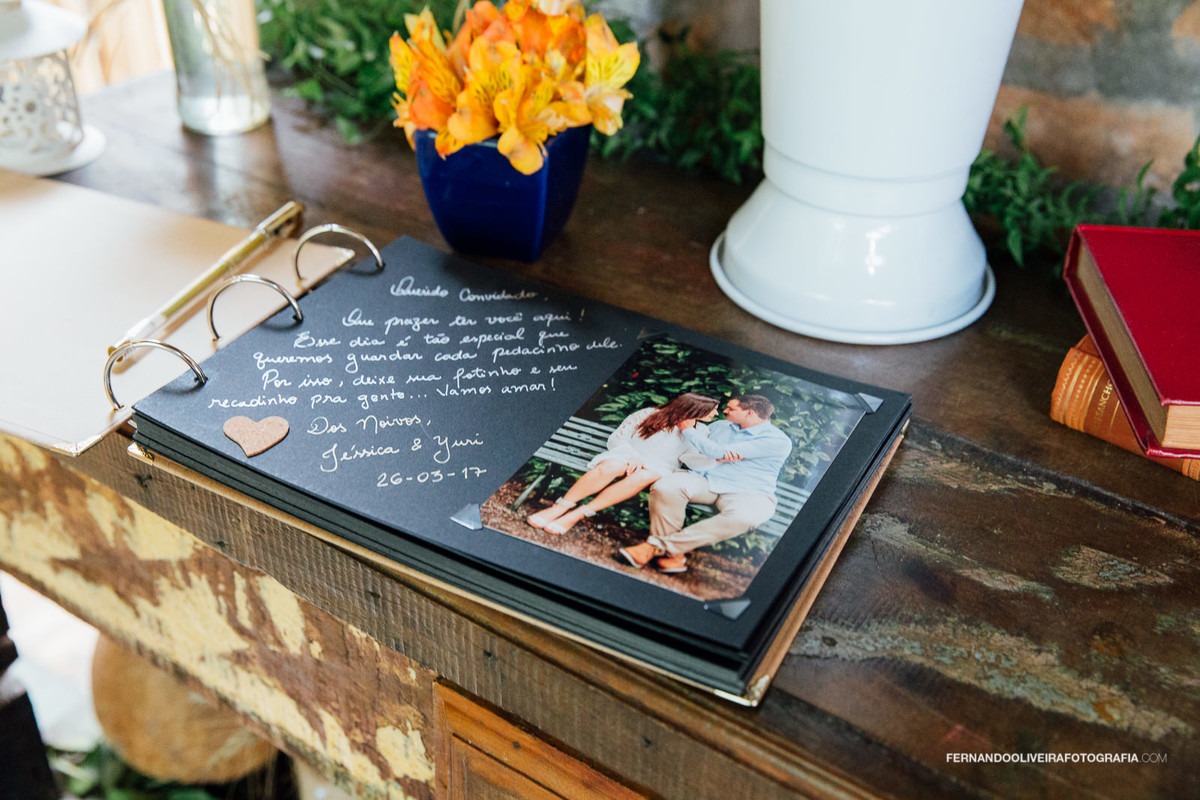 Querido Convidado,
Que prazer ter você aqui!
Esse dia é tão especial que
queremos guardar cada pedacinho dele.
Por isso, deixe sua fotinho e seu
recadinho pra gente... Vamos amar!
Dos Noivos,
Jéssica & Yuri
26-03-17
FERNANDOOLIVEIRAFOTOGRAFIA.COM